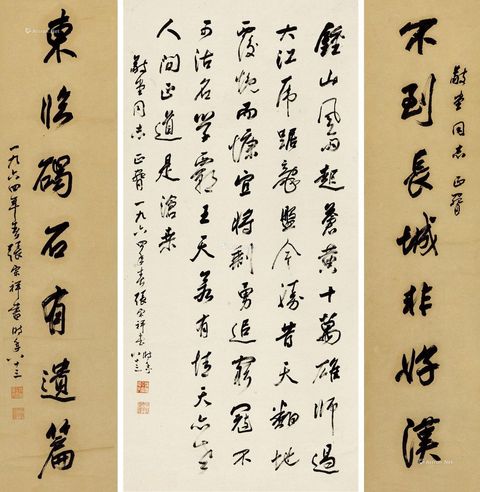 不到長城非好漢
同志正
鍾山風雨起蒼黃十萬雄師過
大江虎踞龍盤今勝昔天翻地
覆慨而慷宜將剩勇追窮寇不
可沽名學霸王天若有情天亦老
人間正道是滄桑
同志正 一九六四年春張宗祥書時年八十三
東臨碣石有遺篇
一九六四年春張宗祥書時年八十三